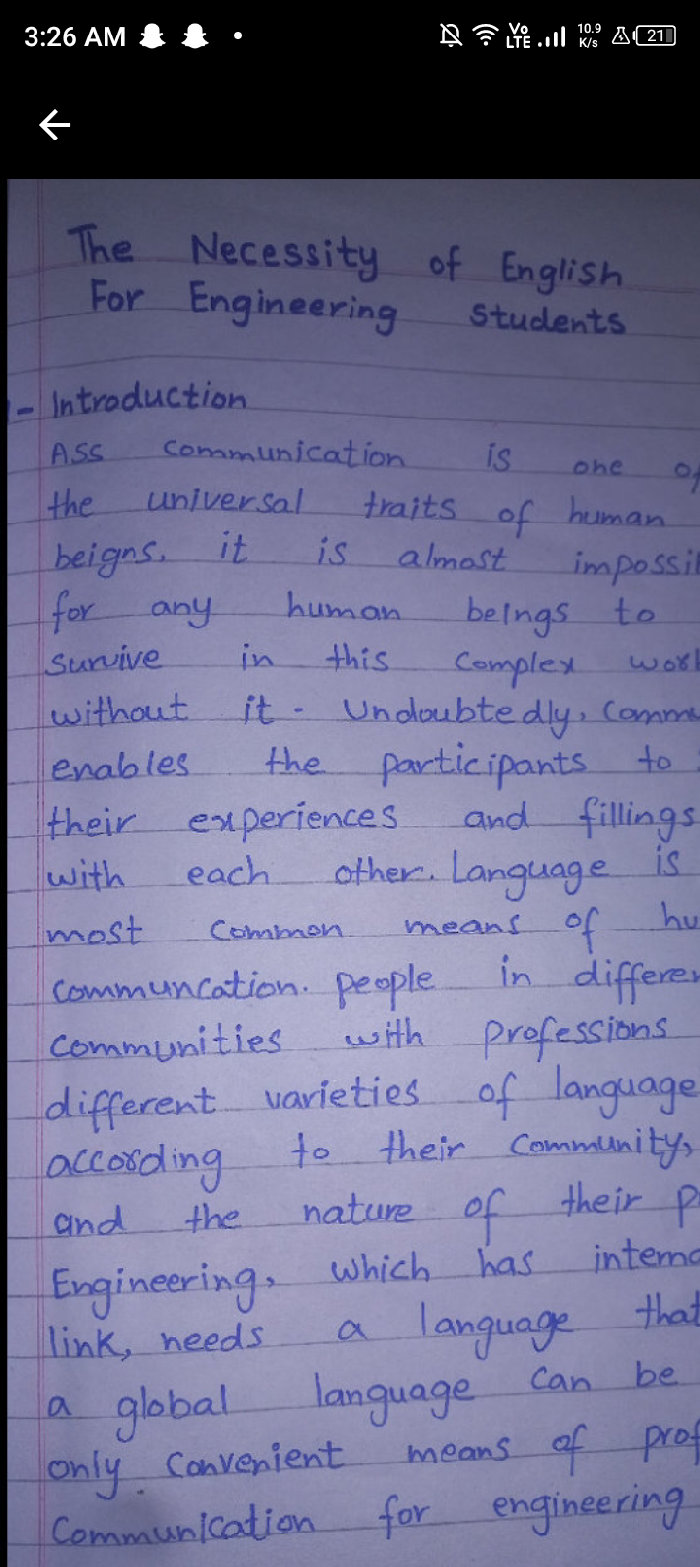 3:26 AM
Vo
LTE
10.9
K/s
21
The Necessity of English
For Engineering Students
- Introduction
Ass communication is one of
the universal traits of human
beigns. it is almost impossib
for any human beings to
survive in this complex worl
without it - Undoubtedly, Commu
enables the participants to
their experiences and fillings
with each other. Language is
most common means of hu
communcation. people in differen
communities with professions
different varieties of language
according to their community,
and the nature of their p
Engineering, which has interna
link, needs a language that
a global language can be
only convenient means of prof
Communication for engineering